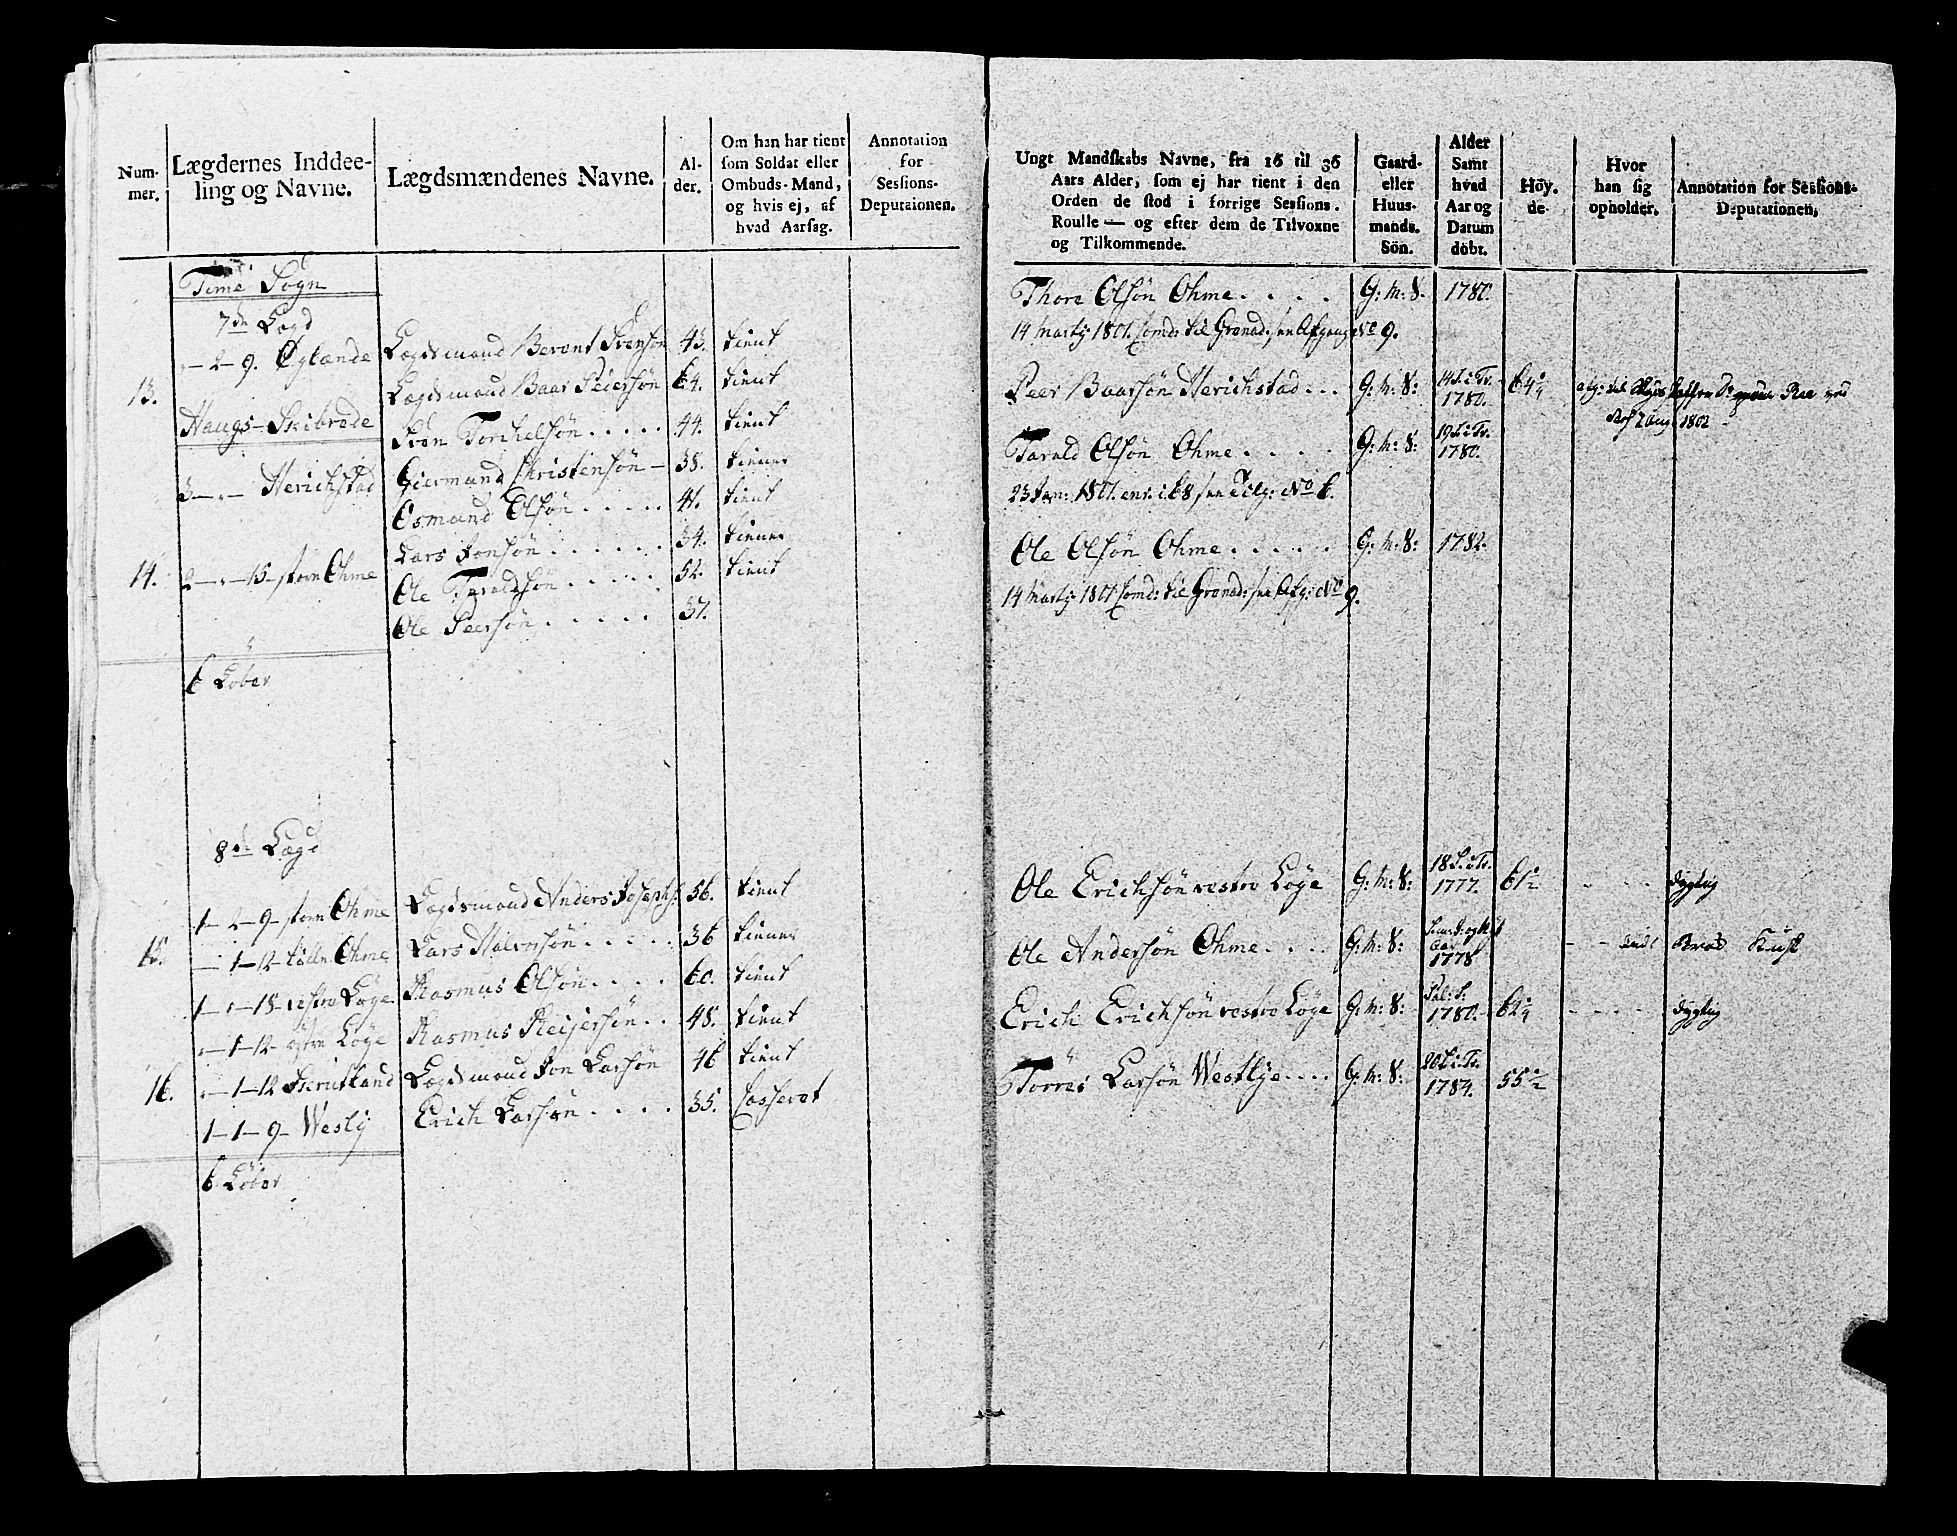 Num-
mer.
Lægdernes Inddee-
ling og Navne.
Lægdsmændenes Navne.
Al-
der.
Om han har tient
som Soldat eller
Ombuds-Mand,
og hvis ej, af
hvad Aarsag.
Annotation
for
Sessions-
Deputaionen.
Time Sogn
7de Lægd
13.
- 2 - 9. Øglænde
Lægdsmand Berent Svensøn 43. tient
Lægdsmand Baar Peiersøn 64. tient
Haugs-Skibrede
Sven Torchelsøn 44. tient
3 - - Herichstad
Giermund Christensøn - 38. tiener
Osmund Olsøn 41. tient
Lars Jonsøn 34. tiener
14. 2 - - 15 - storn Ohme
Ole Taraldsøn 52. tient
Ole Peersøn 37.
6 Løber
8de Lægd
15.
1 - 2 - 9 - storn Ohme Lægdsmand Anders Josephs: 56. tient
- 1 - 12 - Ohme Lars Halvorsøn 36 tiener
1 - - 18 - vestre Løge Rasmus Olsøn 60. tient
- 1 - 12 - østre Løge Rasmus Reijersøn 48. tient
16. - 1 - 12 Skrutland Lægdsmand Jon Larsøn 46 tient
1 - 1 - 9 - Westly Erich Larsøn 35. Casseret
6 Løber
Ungt Mandskabs Navne, fra 16 til 36
Aars Alder, som ej har tient i den
Orden de stod i forrige Sessions.
Roulle — og efter dem de Tilvoxne
og Tilkommende.
Gaard-
eller
Huus-
mands.
Sön.
Alder
Samt
hvad
Aar og
Datum
döbt.
Höy.
de.
Hvor
han sig
opholder.
Annotation for Sessions-
Deputationen,
Thore Olsøn Ohme. . . . G: m: S. 1780.
14 Martj 1801. Comd: til Grenad: see Afgang No 9.
Peer Baarsøn Herichstad . . . G: m: S: 14 S: i Tr. 1780. 64 1/4
1802
Tarald Olsøn Ohme . . . . G: m: S: 19 S: i Tr. 1780.
23 Jan: 1801. enr. i 68 see Tilg: No 6.
Ole Olsøn Ohme . . . . G: m: S: 1782.
14 Martj 1801 Comd: til Grenad: see Afg: No 9.
Ole Erichsøn vestre Løge G: m: S: 18 S: i Tr. 1777. 61 1/2 . . . . dygtig
Ole Andersøn Ohme . . . G: m: S: 1778
Erich Erichsøn vestre Løge G: m: S: 1780. 62 1/4 dygtig
Törres Larsøn Westlye . . . . G: m: S: 20 S: i Tr. 1784. 55 1/2